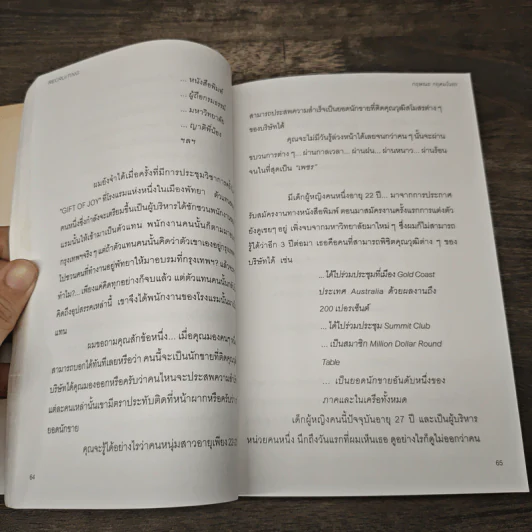 RECRUITING
... หนังสือพิมพ์
... ผู้ถือกรมธรรม์
... มหาวิทยาลัย
... ญาติพี่น้อง
ฯลฯ
ผมยังจำได้เมื่อครั้งที่มีการประชุมวิชาการ
"GIFT OF JOY" ที่โรงแรมแห่งหนึ่งในเมืองพัทยา ตัวแทน
คนหนึ่งซึ่งกำลังจะเตรียมขึ้นเป็นผู้บริหารได้ชักชวนพนักงาน
แรมนั้นให้เข้ามาเป็นตัวแทน พนักงานคนนั้นก็ตามมา
กรุงเทพฯจริง ๆ แต่ถ้าตัวแทนคนนั้นคิดว่าตัวเขาเองอยู่กรุงเทพ
ไปชวนคนที่ทำงานอยู่พัทยาให้มาอบรมที่กรุงเทพฯ? แล้ว
ทำไม?... เพียงแค่คิดทุกอย่างก็จบแล้ว แต่ตัวแทนคนนั้น
คิดถึงอุปสรรคเหล่านี้ เขาจึงได้พนักงานของโรงแรมนั้นมา
แทน
ผมขอถามคุณสักข้อหนึ่ง... เมื่อคุณมองคน
สามารถบอกได้ทันทีเลยหรือว่า คนนี้จะเป็นนักขายที่ติดคุณ
บริษัทได้คุณมองออกหรือครับว่าคนไหนจะประสบความสำเร็จ
แต่ละคนเหล่านั้นเขามีตราประทับติดที่หน้าผากหรือครับว่า
ยอดนักขาย
คุณจะรู้ได้อย่างไรว่าคนหนุ่มสาวอายุเพียง 22-2
64
สามารถประสบความสำเร็จเป็นยอดนักขายที่ติดคุณวุฒิสโมสรต่าง ๆ
ของบริษัทได้
คุณจะไม่มีวันรู้ล่วงหน้าได้เลยจนกว่าคน ๆ นั้นจะผ่าน
ขบวนการต่าง ๆ... ผ่านกาลเวลา... ผ่านฝน... ผ่านหนาว... ผ่านร้อน
จนในที่สุดเป็น "เพชร"
มีเด็กผู้หญิงคนหนึ่งอายุ 22 ปี... มาจากการประกาศ
รับสมัครงานทางหนังสือพิมพ์ ตอนมาสมัครงานครั้งแรกการแต่งตัว
ยังดูเชยๆ อยู่ เพิ่งจบจากมหาวิทยาลัยมาใหม่ ๆ ซึ่งผมก็ไม่สามารถ
รู้ได้ว่าอีก 3 ปีต่อมา เธอคือคนที่สามารถพิชิตคุณวุฒิต่าง ๆ ของ
บริษัทได้ เช่น
... ได้ไปร่วมประชุมที่เมือง Gold Coast
ประเทศ Australia ด้วยผลงานถึง
200 เปอร์เซ็นต์
... ได้ไปร่วมประชุม Summit Club
... เป็นสมาชิก Million Dollar Round
Table
... เป็นยอดนักขายอันดับหนึ่งของ
ภาคและในเครือทั้งหมด
เด็กผู้หญิงคนนี้ปัจจุบันอายุ 27 ปี และเป็นผู้บริหาร
หน่วยคนหนึ่ง นึกถึงวันแรกที่ผมเห็นเธอ ดูอย่างไรก็ดูไม่ออกว่าคน
65